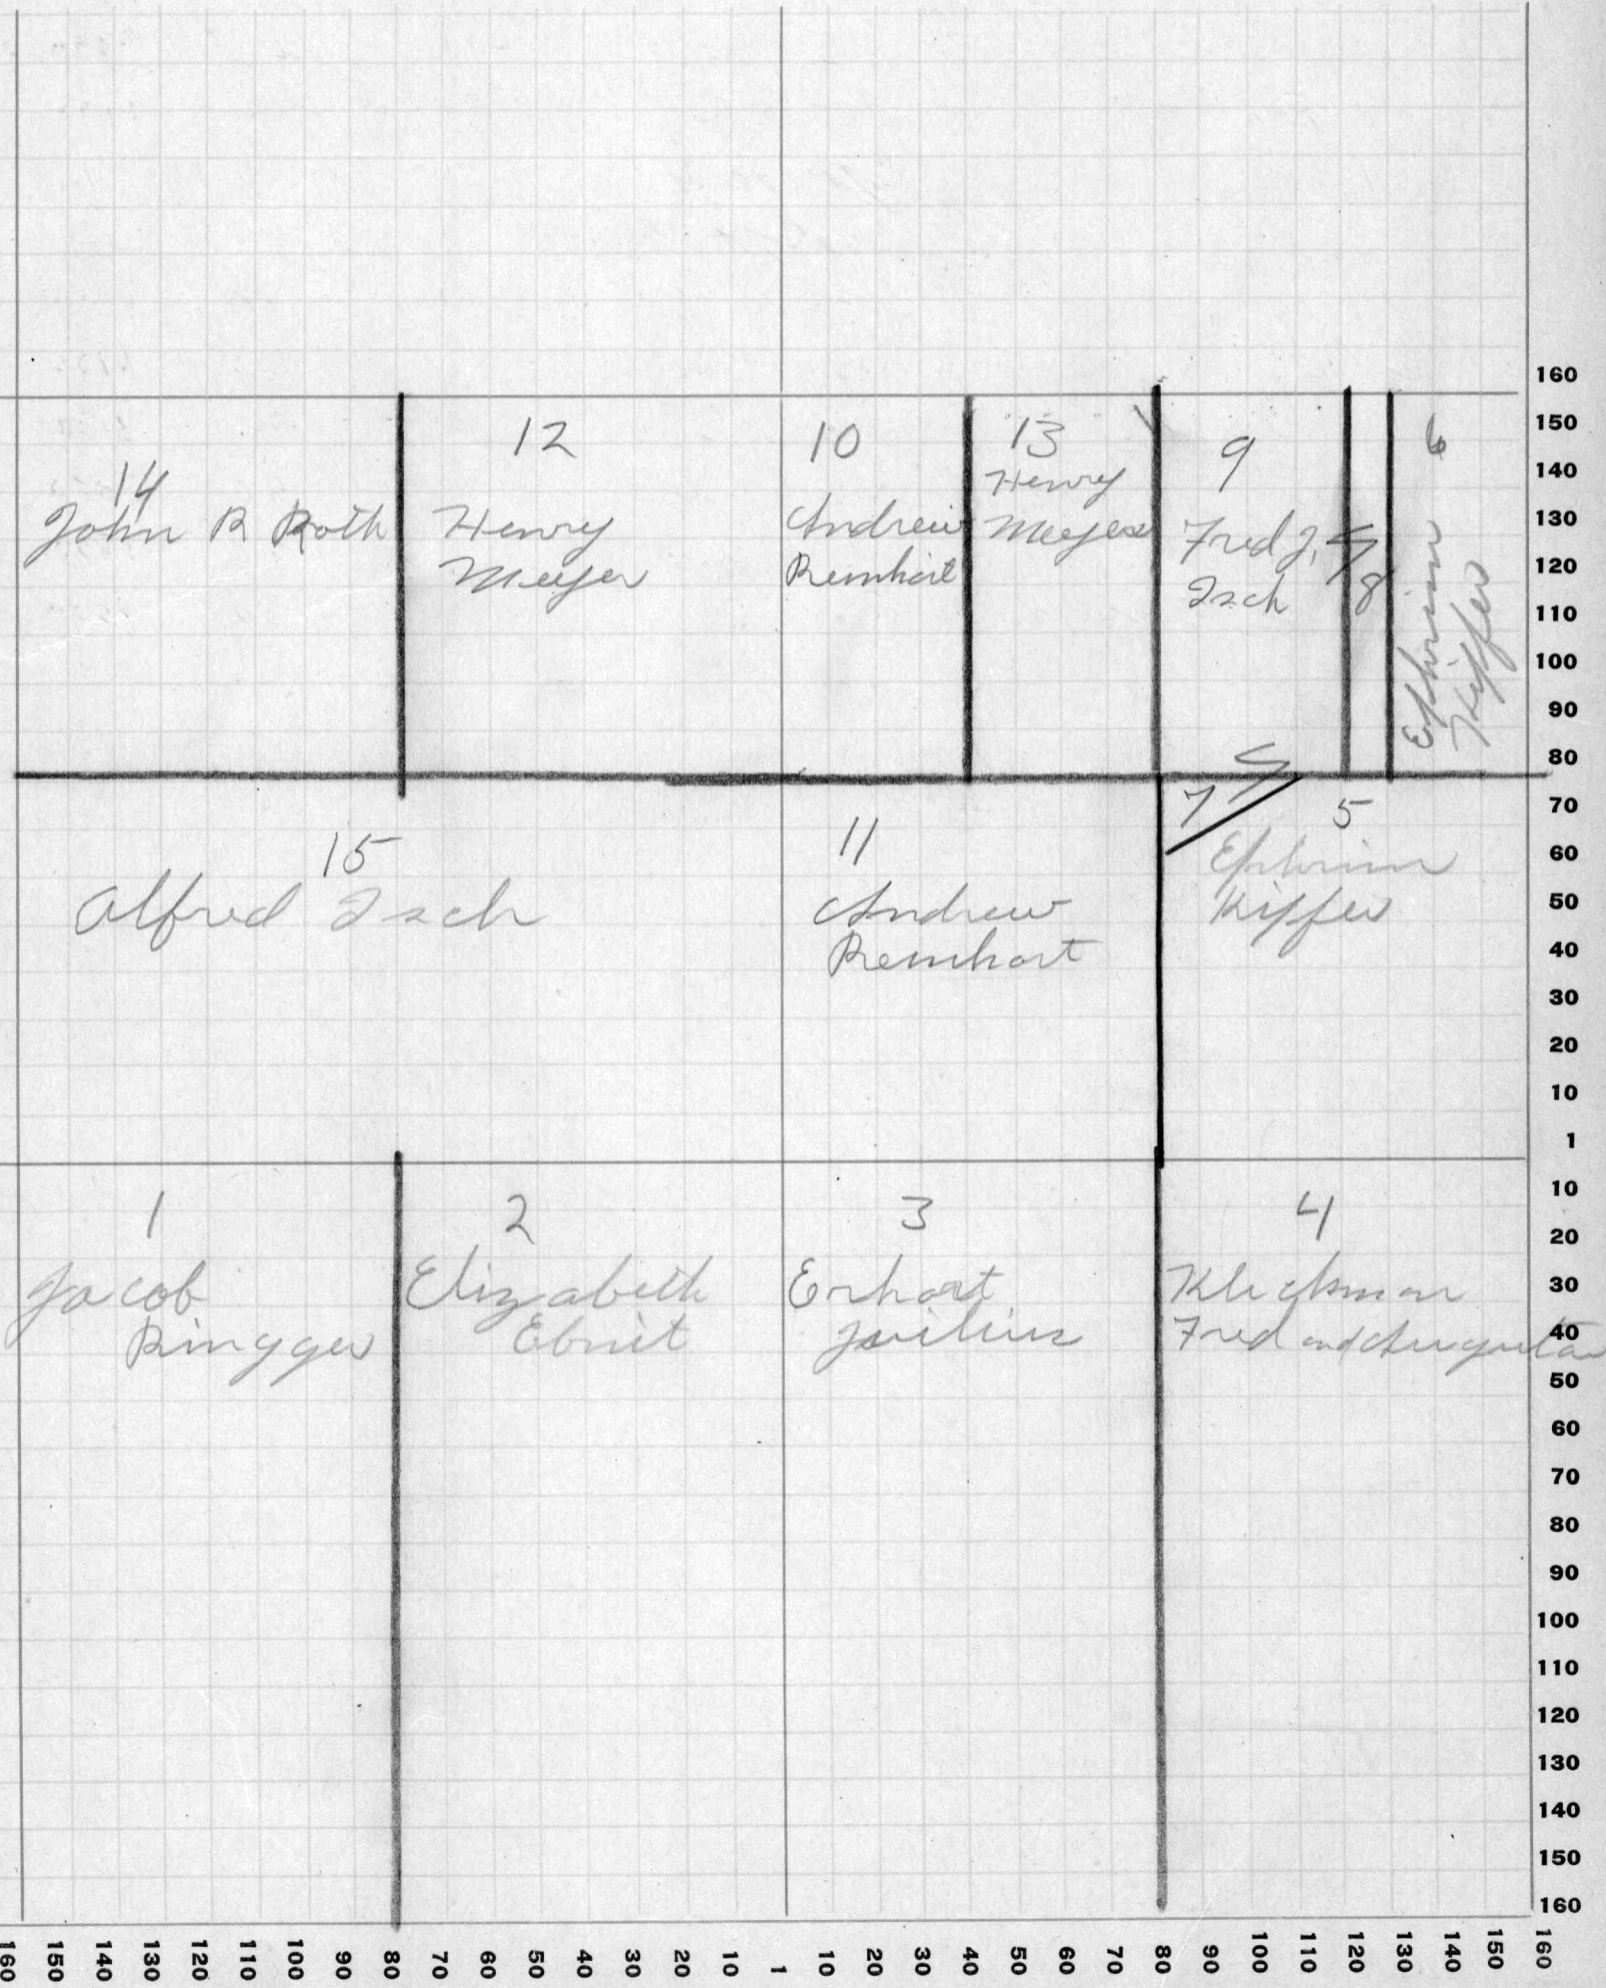 14
John R Roth
12
Henry
Meyer
10
Andrew
Reinhart
13
Henry
Meyer
9
Fred J.
Isch
8
6
Ephriim
Kiffer
15
Alfred Isch
11
Andrew
Reinhart
7
5
Ephriim
Kiffer
1
Jacob
Ringger
2
Elizabeth
Ebnit
3
Erhart
Juilius
4
Kleckman
Fred and Augusta
160
150
140
130
120
110
100
90
80
70
60
50
40
30
20
10
1
10
20
30
40
50
60
70
80
90
100
110
120
130
140
150
160
160 150 140 130 120 110 100 90 80 70 60 50 40 30 20 10 1 10 20 30 40 50 60 70 80 90 100 110 120 130 140 150 160